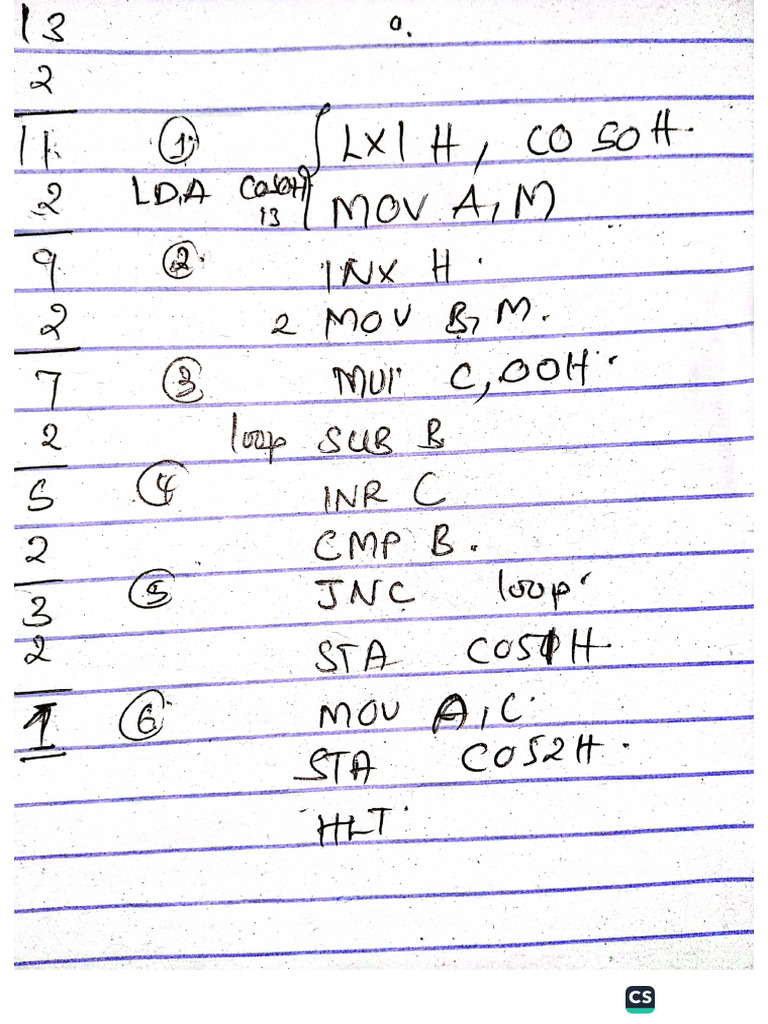 13 0.
2
11 ① LXI H, C050H.
2 LDA C050H MOV A, M
13
9 ② INX H.
2 2 MOV B, M.
7 ③ MVI C, 00H.
2 loop SUB B
5 ④ INR C
2 CMP B.
3 ⑤ JNC loop
2 STA C051H
1 ⑥ MOV A, C.
STA C052H.
HLT.
CS